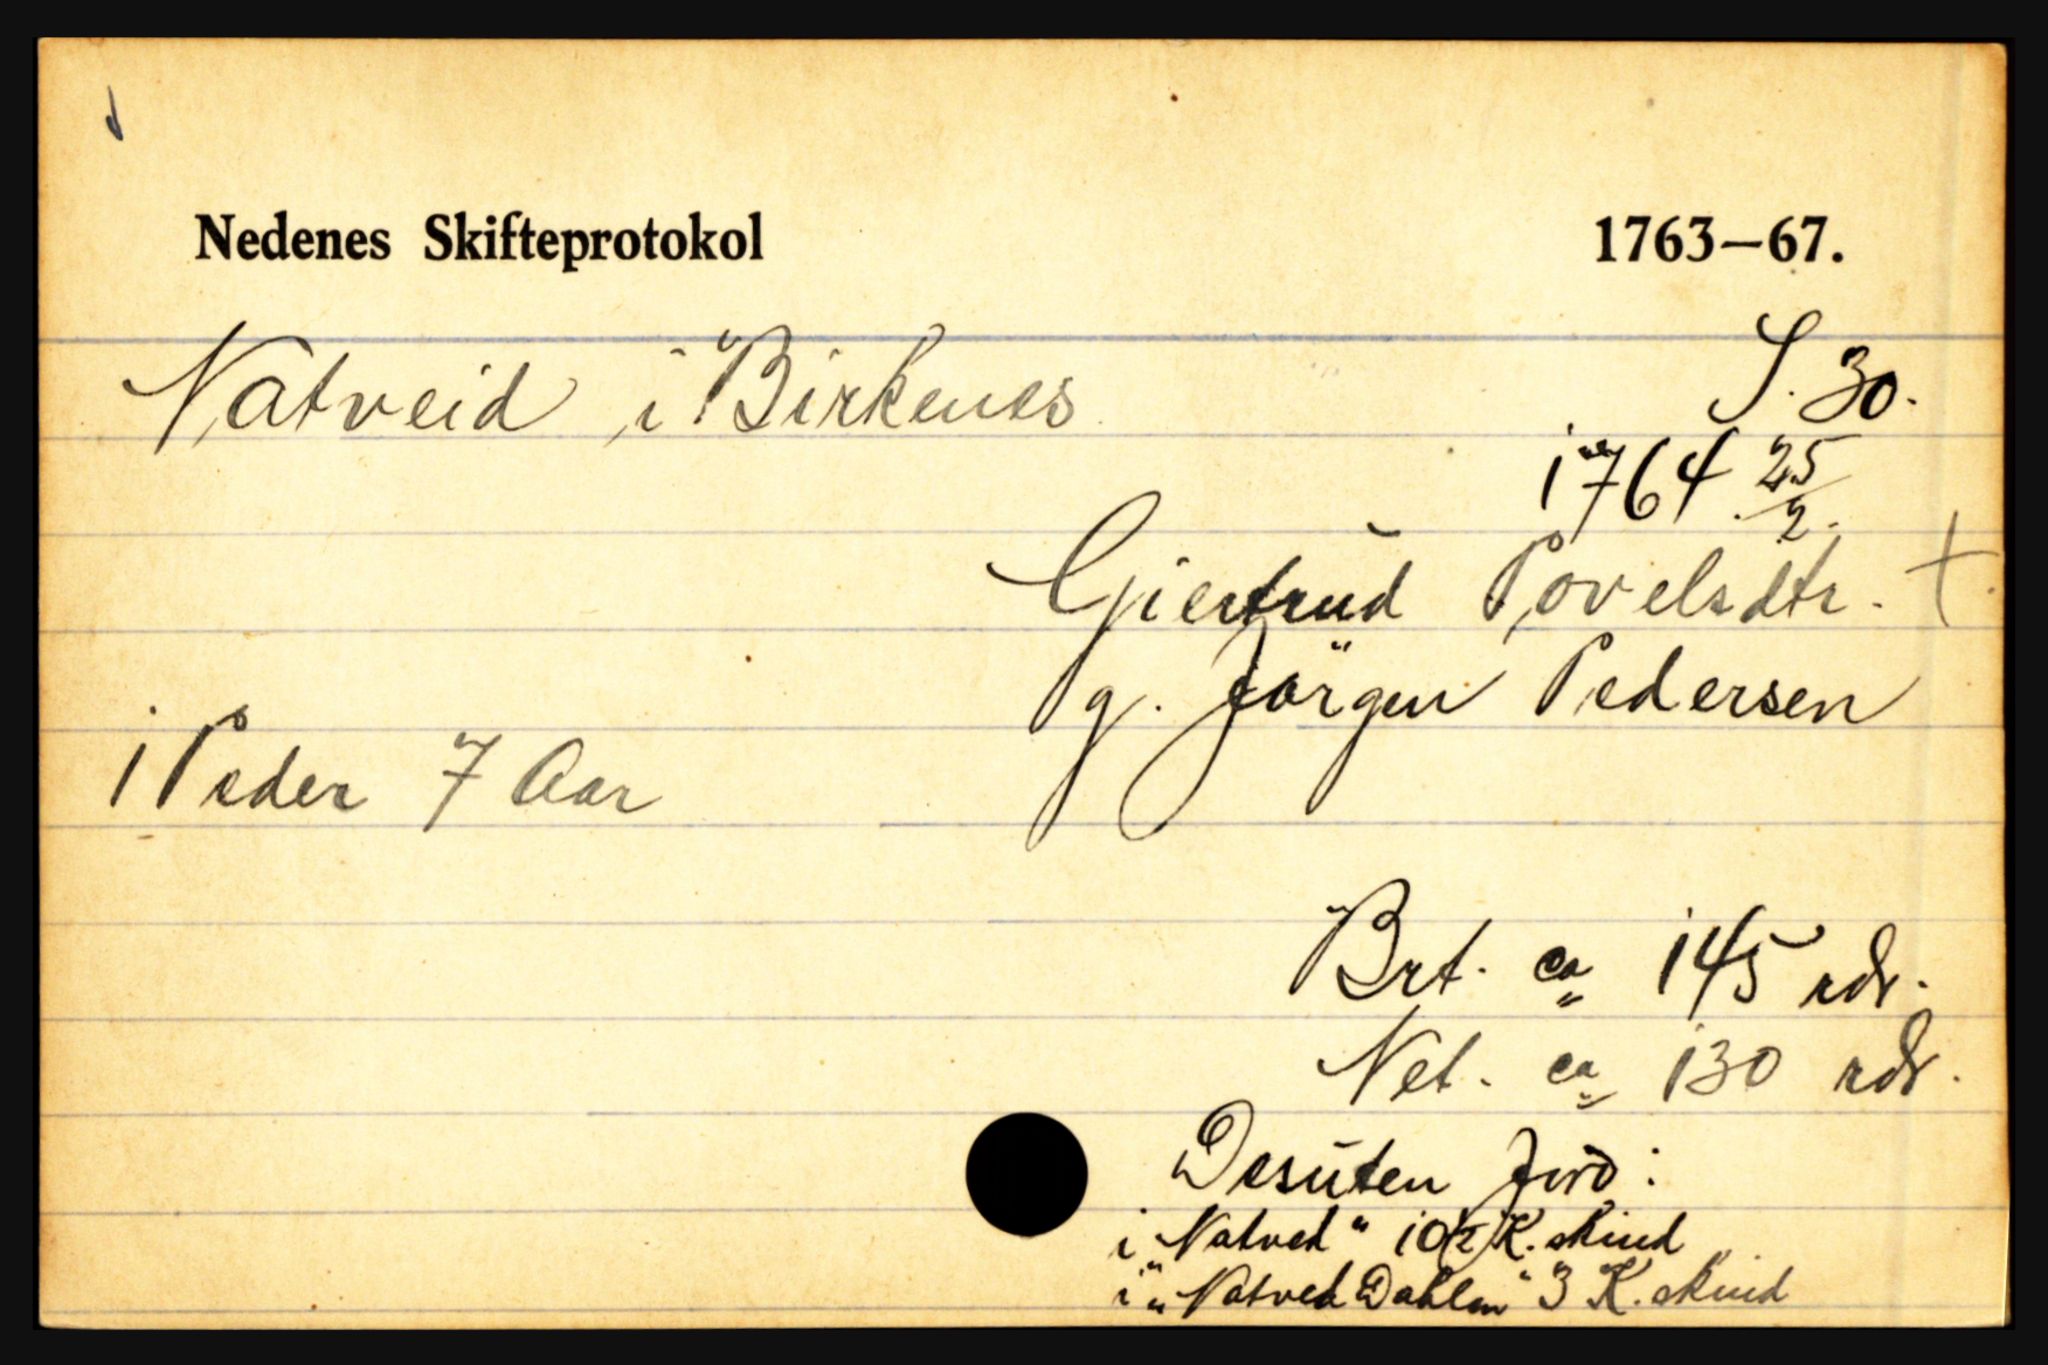 Nedenes Skifteprotokol 1763—67.
Natveid i Birkenes S. 30.
1764 25/2.
Giertrud Povelsdtr. †.
g. Jörgen Pedersen
1 Peder 7 Aar
Brt. ca 145 rdr.
Net. ca 130 rdr.
Desuten Jord:
i „Natved" 10 1/2 K. skind
i „Natved Dahlen" 3 K. skind